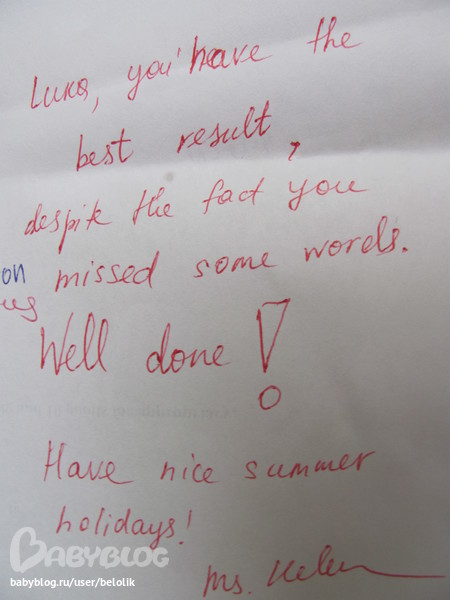 Luka, you have the
best result,
despite the fact you
on missed some words.
Well done!
Have nice summer
holidays!
Ms. Helen
BABYBLOG
babyblog.ru/user/belolik